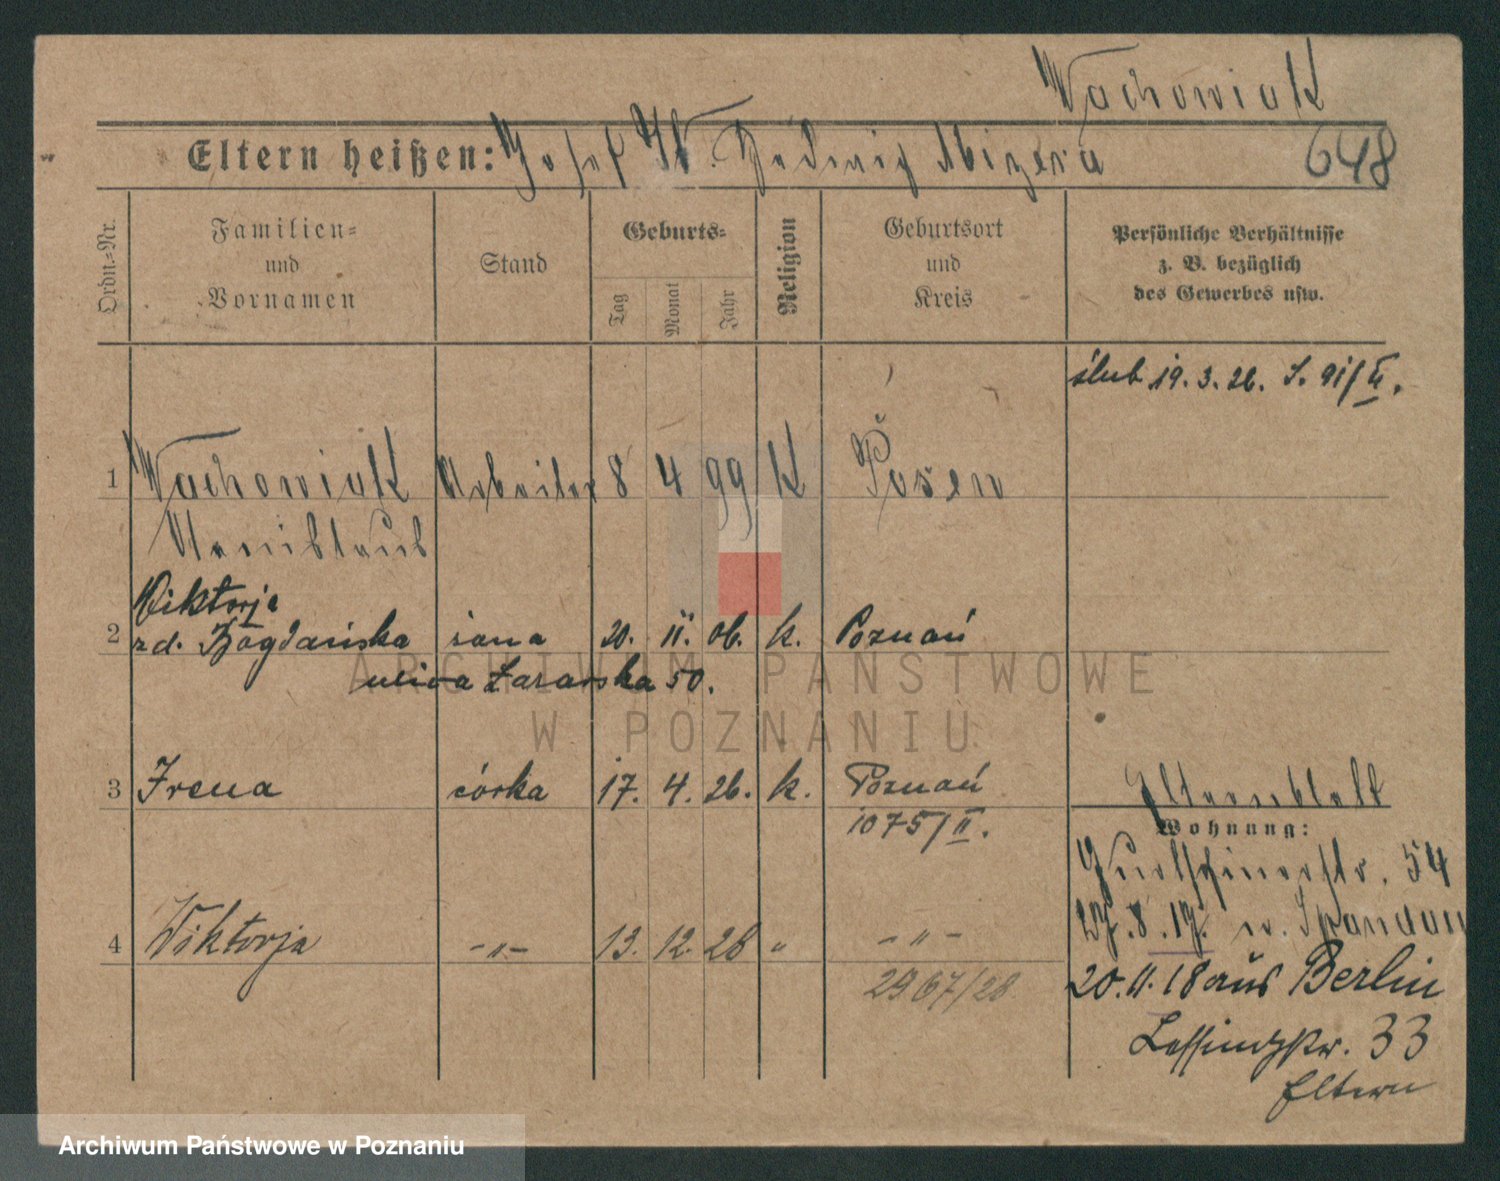 Wachowiak
Eltern heißen: Josef W. Hedwig Mizera 648
Ordn.-Nr.
Familien-
und
Vornamen
Stand
Geburts-
Tag
Monat
Jahr
Religion
Geburtsort
und
Kreis
Persönliche Verhältnisse
z. B. bezüglich
des Gewerbes usw.
ślub 19. 3. 26. S. 91/II.
1 Wachowiak Arbeiter 8 4 99 K Posen
Stanislaus
Wiktorja
2 zd. Bogdańska żona 20. 11. 06. k. Poznań
ulica 50.
3 Irena córka 17. 4. 26. k. Poznań
1075/II.
Elternblatt
Wohnung:
54
27. 8. 17. n. Spandau
4 Wiktorja -„- 13. 12. 28 „ -„-
2967/28
20. 11. 18 aus Berlin
Lessingstr. 33
Eltern
ARCHIWUM PAŃSTWOWE
W POZNANIU
Archiwum Państwowe w Poznaniu